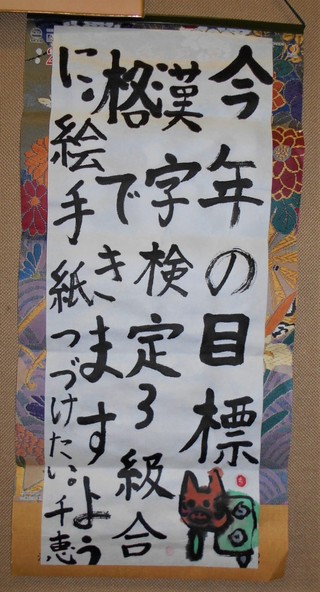 今年の目標
漢字検定3級合
格できますよう
に:絵手紙つづけたい。千恵